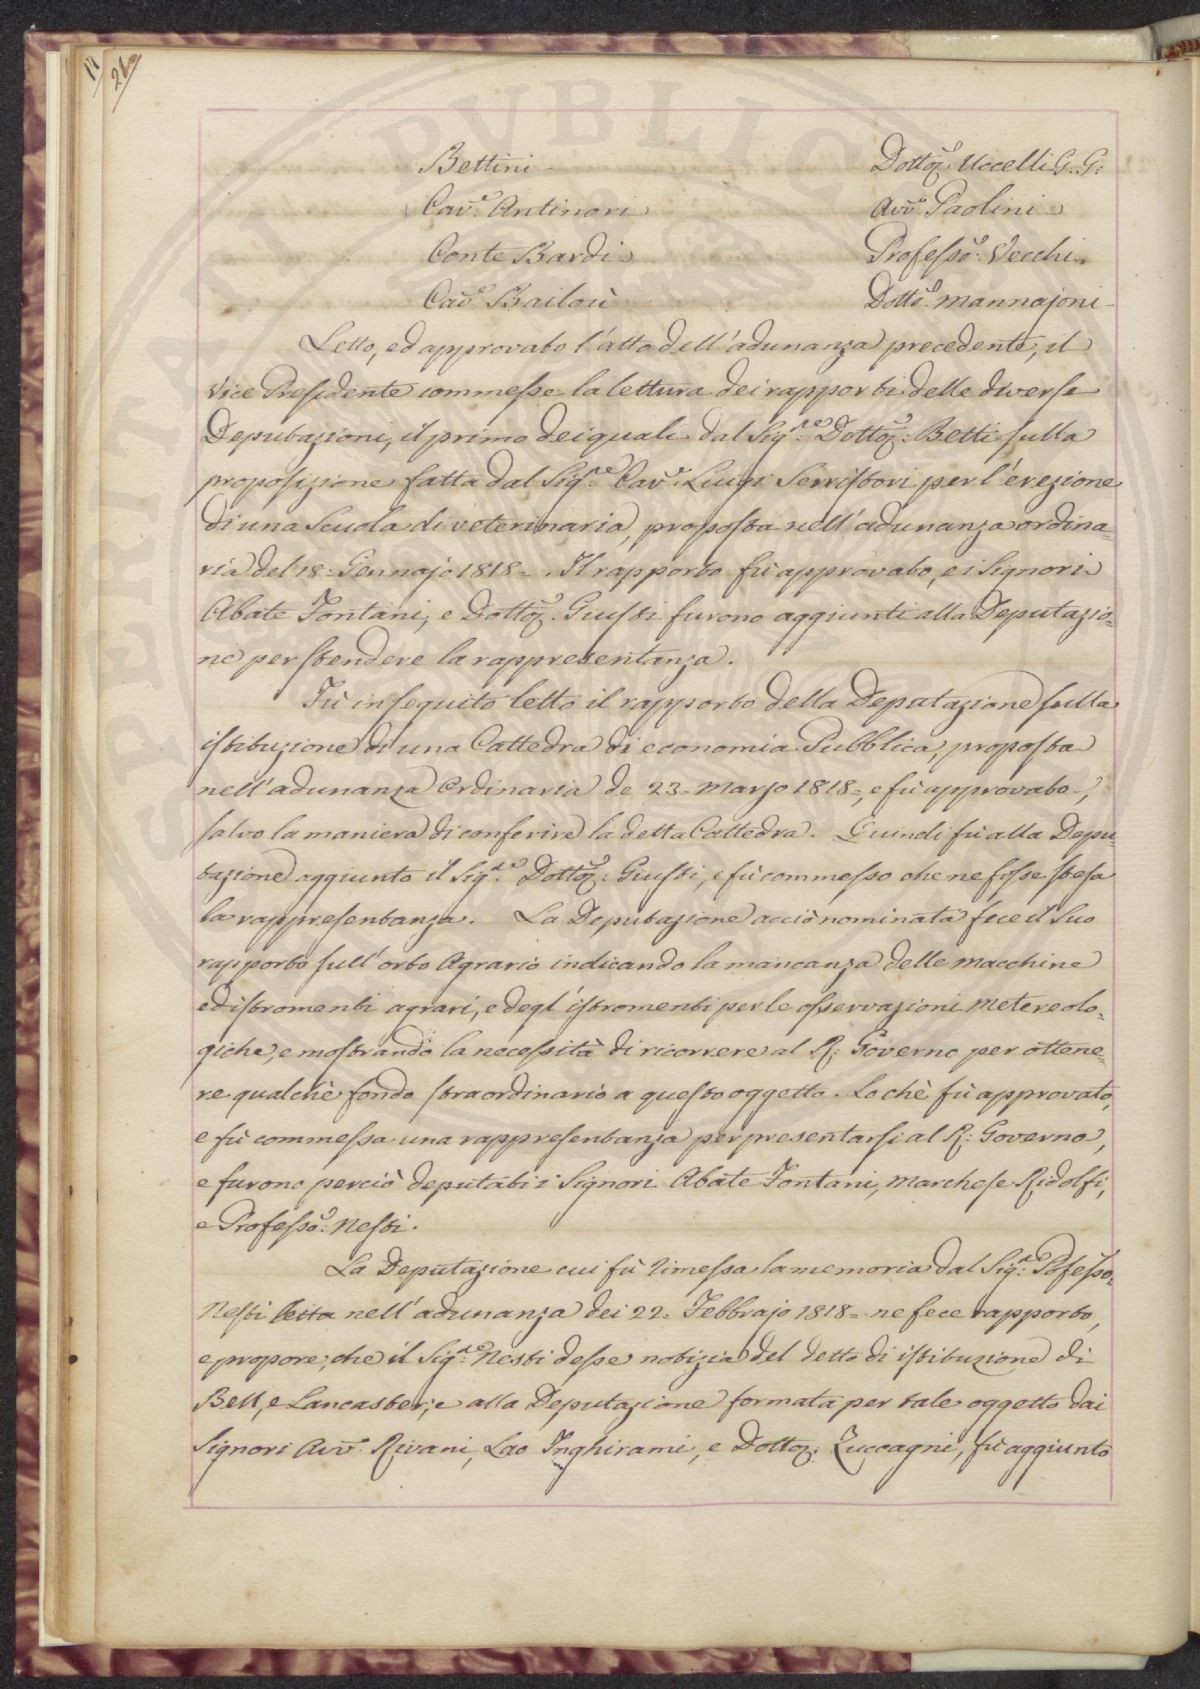 11
26
Bettini Dotto.re Uccelli G. G:
Cav.e Antinori Avv.o Paolini
Conte Bardi Professo.e Vecchi
Cav.e Bailoù Dotto.e Mannajoni
Letto, ed approvato l'atto dell'adunanza precedente, il
Vice Presidente commesse la lettura dei rapporti delle diverse
Deputazioni, il primo dei quali dal Sig.re Dotto.re Betti sulla
proposizione fatta dal Sig.re Cav.e Luigi Serristori per l'erezione
di una Scuola di veterinaria, proposta nell'adunanza ordina=
ria del 18= Gennajo 1818=. Il rapporto fù approvato, e i Signori
Abate Fontani, e Dotto.re Giusti furono aggiunti alla Deputazio=
ne per stendere la rappresentanza.
Fù in seguito letto il rapporto della Deputazione sulla
istituzione di una Cattedra di economia Pubblica, proposta
nell'adunanza Ordinaria de 23= Marzo 1818=, e fù approvato,
salvo la maniera di conferire la detta Cattedra. Quindi fù alla Depu=
tazione aggiunto il Sig.re Dotto.re Giusti, e fù commesso che ne fosse stesa
la rappresentanza. La Deputazione acciò nominata fece il Suo
rapporto sull'orto Agrario indicando la mancanza delle macchine
ed istromenti agrari, e degl'istromenti per le osservazioni Metereolo=
giche, e mostrando la necessità di ricorrere al R: Governo per ottene=
re qualchè fondo straordinario a questo oggetto. Lochè fù approvato,
e fù commessa una rappresentanza per presentarsi al R: Governo,
e furono perciò deputati i Signori Abate Fontani, Marchese Ridolfi,
e Professo.e Nesti.
La Deputazione cui fù rimessa la memoria dal Sig.re Pofesso.
Nesti letta nell'adunanza dei 22= Febbrajo 1818= ne fece rapporto,
e propore; che il Sig.re Nesti desse notizia del detto di istituzione di
Bell, e Lancaster; e alla Deputazione formata per tale oggetto dai
Signori Avv.o Rivani, Lao Inghirami, e Dotto.re Zuccagni, fù aggiunto